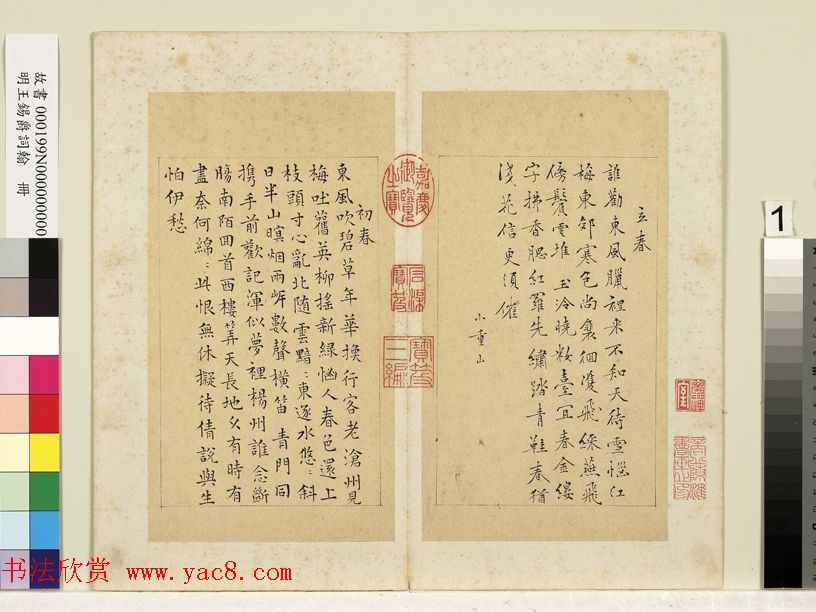 立春
誰勸東風臘裡來不知天待雪惱江
梅東郊寒色尚裵徊雙飛綵燕飛
傍鬢雲堆 玉冷曉粧臺宜春金縷
字拂香腮紅羅先繡踏青鞋春猶
淺花信更須催
小重山
初春
東風吹碧草年華換行客老滄州見
梅吐舊英柳搖新綠惱人春色還上
枝頭寸心亂北隨雲黯:東逐水悠:斜
日半山暝烟兩岍數聲橫笛 青門同
携手前歡記渾似夢裡楊州誰念斷
腸南陌回首西樓筭天長地久有時有
盡奈何綿:此恨無休擬待倩說與生
怕伊愁
嘉慶御覽之寶
石渠寶笈
寶笈三編
故書 000199N000000000
明王錫爵詞翰 冊
1
书法欣赏 www.yac8.com